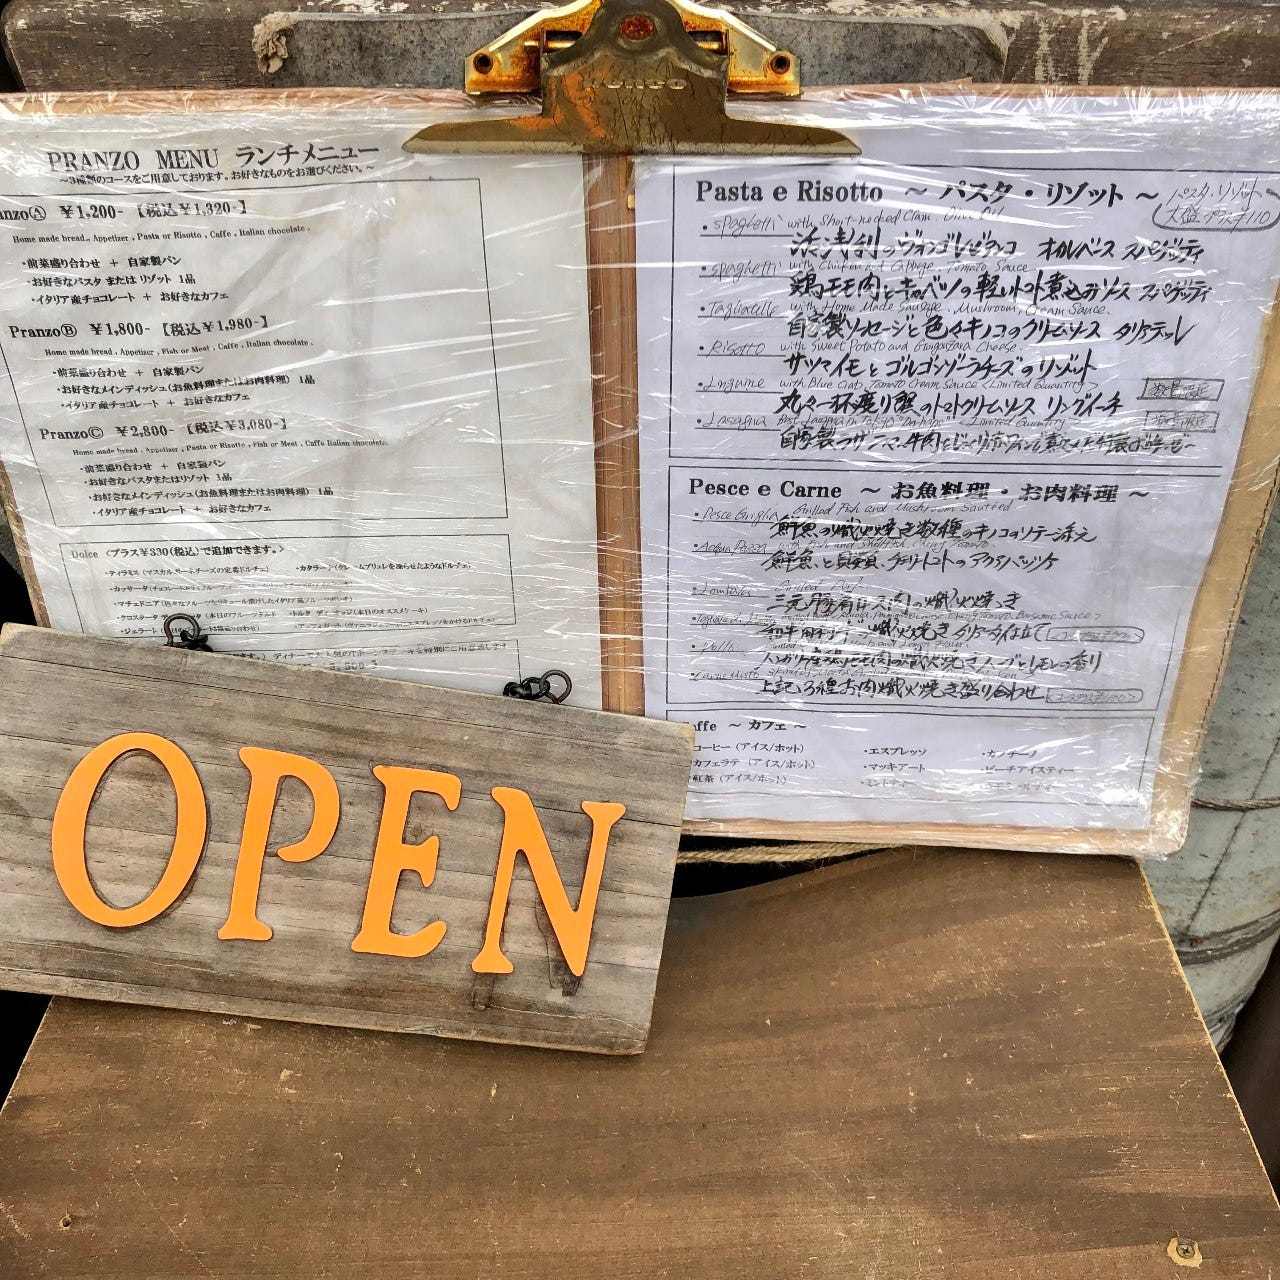 PRANZO MENU ランチメニュー
～3種類のコースをご用意しております。お好きなものをお選びください。～
anzoⒶ ￥1,200-【税込￥1,320-】
Home made bread., Appetizer , Pasta or Risotto , Caffe , Italian chocolate .
・前菜盛り合わせ ＋ 自家製パン
・お好きなパスタ または リゾット 1品
・イタリア産チョコレート ＋ お好きなカフェ
PranzoⒷ ￥1,800-【税込￥1,980-】
Home made bread , Appetizer , Fish or Meat , Caffe , Italian chocolate .
・前菜盛り合わせ ＋ 自家製パン
・お好きなメインディッシュ(お魚料理またはお肉料理) 1品
・イタリア産チョコレート ＋ お好きなカフェ
PranzoⒸ ￥2,800-【税込￥3,080-】
Home made bread , Appetizer , Pasta or Risotto , Fish or Meat , Caffe Italian chocolate.
・前菜盛り合わせ ＋ 自家製パン
・お好きなパスタまたはリゾット 1品
・お好きなメインディッシュ(お魚料理またはお肉料理) 1品
・イタリア産チョコレート ＋ お好きなカフェ
Dolce 〈プラス￥330(税込)で追加できます。〉
・ティラミス (マスカルポーネチーズの定番ドルチェ)
・カタラーナ(クレームブリュレを凍らせたようなドルチェ)
・マチェドニア
・クロスタータ (本日のフルーツタルト
・トルタ デ (本日のオススメケーキ)
・ジェラート
OPEN
Pasta e Risotto ～ パスタ・リゾット ～
パスタ・リゾット
大盛 プラス￥110
・spaghetti with Short-necked Clam, Olive Oil
浅利のヴォンゴレビアンコ オイルベース スパゲッティ
・spaghetti with Chicken and Cabbage, Tomato Sauce
鶏モモ肉とキャベツの軽いトマト煮込みソース スパゲッティ
・Tagliatelle with Home Made Sausage, Mushroom, Cream Sauce.
自家製ソーセージと色々キノコのクリームソース タリアテッレ
・Risotto with Sweet Potato and Gorgonzola Cheese.
サツマイモとゴルゴンゾーラチーズのリゾット
・Linguine with Blue Crab, Tomato Cream Sauce <Limited Quantity> 数量限定
丸々一杯渡り蟹のトマトクリームソース リングイーネ
・Lasagna <Limited Quantity> 数量限定
自家製ラザニア
Pesce e Carne ～ お魚料理・お肉料理 ～
・Pesce Griglia Grilled Fish and Mushroom Sauteed
鮮魚の熾火焼き 数種のキノコのソテー添え
・Acqua Pazza
鮮魚と貝類、チェリートマトのアクアパッツァ
三元豚肩ロース肉の熾火焼き
熾火焼き タリアータ仕立て
・Pollo
・Carne Misto
上記3種お肉熾火焼き盛り合わせ
affe ～ カフェ ～
コーヒー (アイス/ホット)
・エスプレッソ
・カプチーノ
カフェラテ (アイス/ホット)
・マッキアート
・ピーチアイスティー
紅茶 (アイス/ホット)
・ミントティー